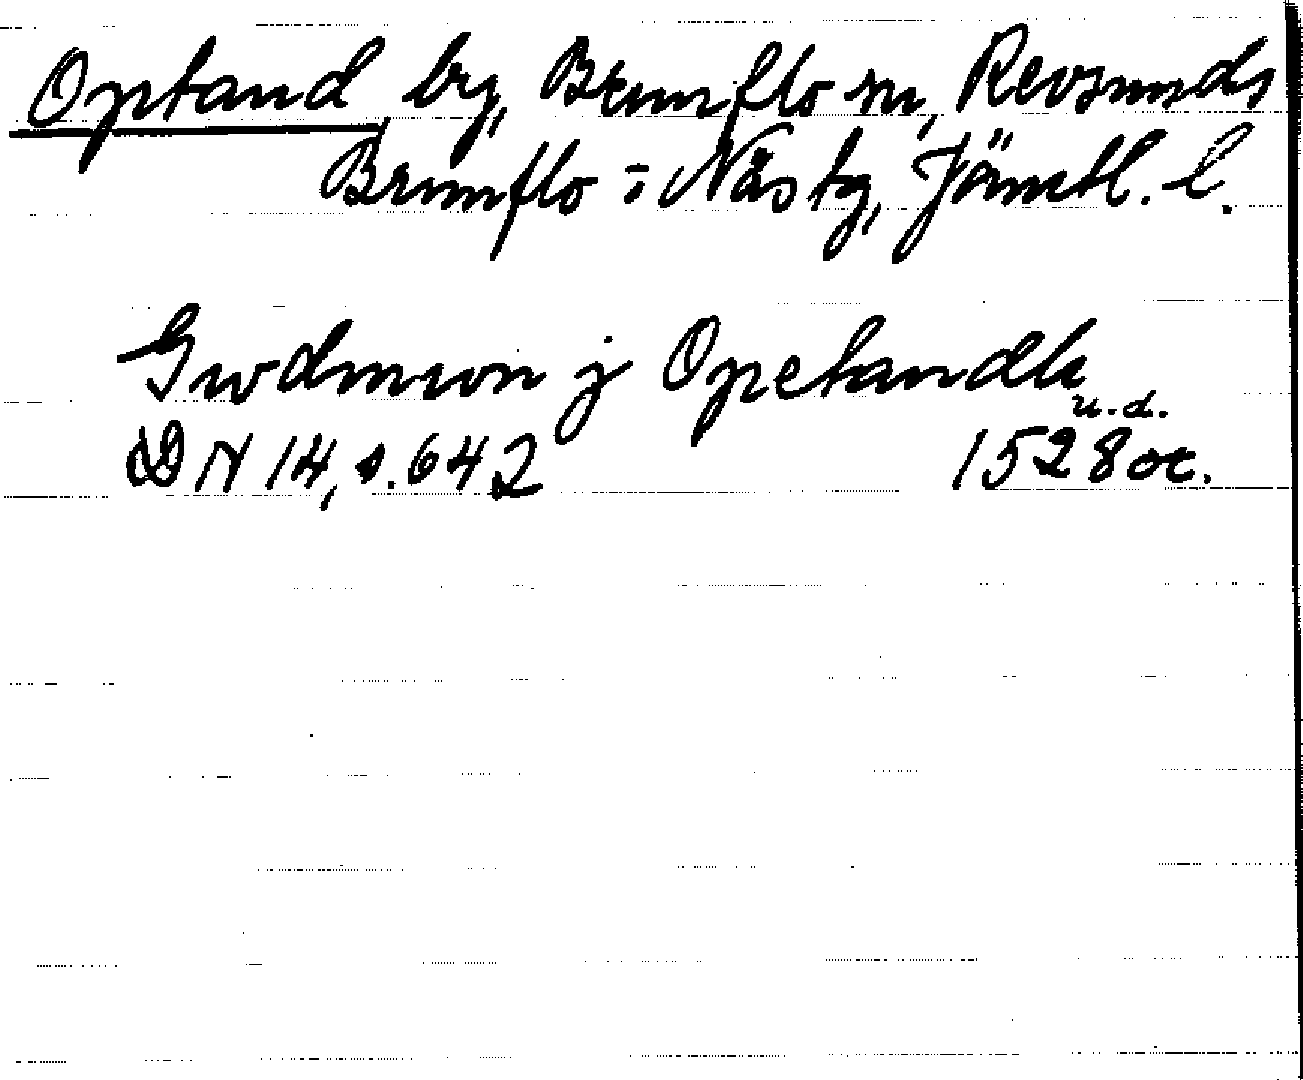 Optand by, Brunflo sn, Revsunds
Brunflo o Näs tg, Jämtl. l.
Gwdmwon j Opetandh
u.d.
DN 14, s. 642 1528 oc.